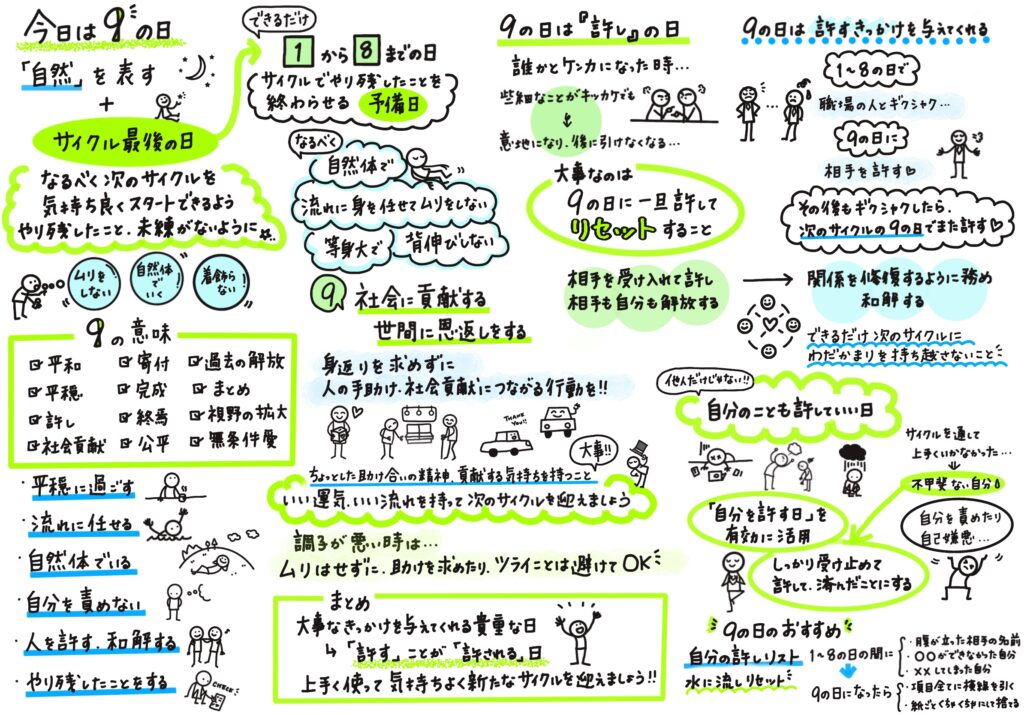 今日は9の日
「自然」を表す
+
サイクル最後の日
なるべく次のサイクルを
気持ち良くスタートできるよう
やり残したこと、未練がないように
ムリを
しない
自然体で
いく
着飾ら
ない!
9の意味
平和
寄付
過去の解放
平穏
完成
まとめ
許し
終焉
視野の拡大
社会貢献
公平
無条件愛
・平穏に過ごす
・流れに任せる
・自然体でいる
・自分を責めない
・人を許す、和解する
・やり残したことをする
CHECK
できるだけ
1から8までの日
サイクルでやり残したことを
終わらせる 予備日
なるべく
自然体で
流れに身を任せてムリをしない
等身大で 背伸びしない
9 社会に貢献する
世間に恩返しをする
身返りを求めずに
人の手助け、社会貢献につながる行動を!!
THANK
YOU!!
大事!!
ちょっとした助け合いの精神、貢献する気持ちを持つこと
いい運気、いい流れを持って次のサイクルを迎えましょう
調子が悪い時は…
ムリはせずに、助けを求めたり、ツライことは避けてOK
まとめ
大事なきっかけを与えてくれる貴重な日
↳「許す」ことが「許される」日
上手く使って気持ちよく新たなサイクルを迎えましょう!!
9の日は『許し』の日
誰かとケンカになった時…
些細なことがキッカケでも
↓
意地になり、後に引けなくなる…
大事なのは
9の日に一旦許して
リセットすること
相手を受け入れて許し
相手も自分も解放する
9の日は許すきっかけを与えてくれる
1~8の日で
職場の人とギクシャク…
9の日に
相手を許す♡
その後もギクシャクしたら、
次のサイクルの9の日でまた許す♡
→ 関係を修復するように務め
和解する
できるだけ次のサイクルに
わだかまりを持ち越さないこと
他人だけじゃない!!
自分のことも許していい日
サイクルを通して
上手くいかなかった…
↓
不甲斐ない自分
「自分を許す日」を
有効に活用
自分を責めたり
自己嫌悪…
しっかり受け止めて
許して、済んだことにする
9の日のおすすめ
自分の許しリスト
水に流しリセット
1~8の日の間に
・腹が立った相手の名前
・〇〇ができなかった自分
・××してしまった自分
9の日になったら
・項目全てに横線を引く
・紙ごとくちゃくちゃにして捨てる